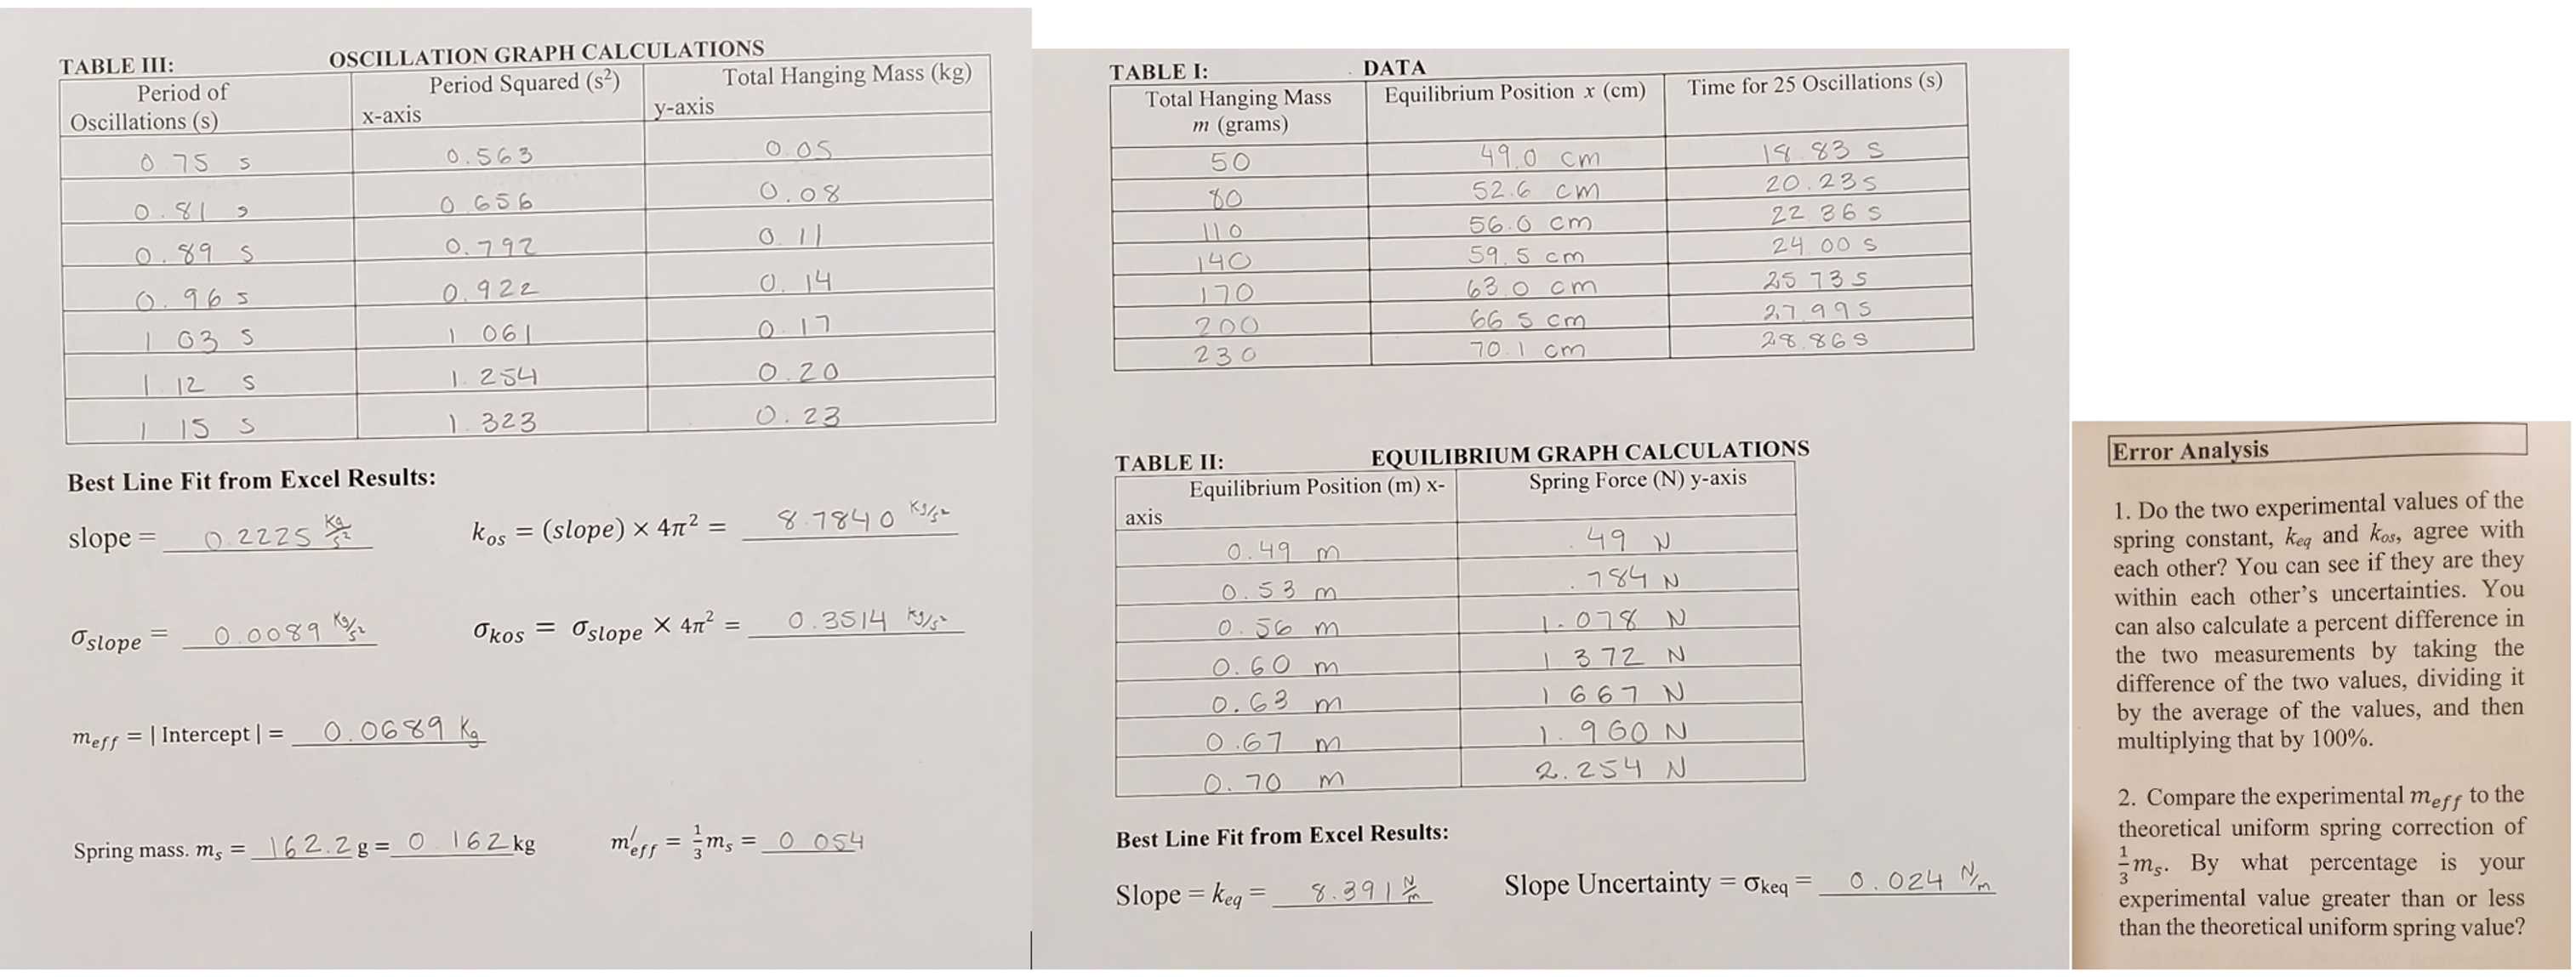 TABLE III: OSCILLATION GRAPH CALCULATIONS
Period of Oscillations (s) Period Squared (s²) x-axis Total Hanging Mass (kg) y-axis
0.75 s 0.563 0.05
0.81 s 0.656 0.08
0.89 s 0.792 0.11
0.96 s 0.922 0.14
1.03 s 1.061 0.17
1.12 s 1.254 0.20
1.15 s 1.323 0.23
Best Line Fit from Excel Results:
slope = 0.2225 kg/s² k_os = (slope) × 4π² = 8.7840 kg/s²
σ_slope = 0.0089 kg/s² σ_kos = σ_slope × 4π² = 0.3514 kg/s²
m_eff = | Intercept | = 0.0689 kg
Spring mass. m_s = 162.2 g = 0.162 kg m'_eff = 1/3 m_s = 0.054
TABLE I: DATA
Total Hanging Mass m (grams) Equilibrium Position x (cm) Time for 25 Oscillations (s)
50 49.0 cm 18.83 s
80 52.6 cm 20.23 s
110 56.0 cm 22.36 s
140 59.5 cm 24.00 s
170 63.0 cm 25.73 s
200 66.5 cm 27.99 s
230 70.1 cm 28.86 s
TABLE II: EQUILIBRIUM GRAPH CALCULATIONS
Equilibrium Position (m) x-axis Spring Force (N) y-axis
0.49 m .49 N
0.53 m .784 N
0.56 m 1.078 N
0.60 m 1.372 N
0.63 m 1.667 N
0.67 m 1.960 N
0.70 m 2.254 N
Best Line Fit from Excel Results:
Slope = k_eq = 8.391 N/m Slope Uncertainty = σ_keq = 0.024 N/m
Error Analysis
1. Do the two experimental values of the
spring constant, k_eq and k_os, agree with
each other? You can see if they are they
within each other's uncertainties. You
can also calculate a percent difference in
the two measurements by taking the
difference of the two values, dividing it
by the average of the values, and then
multiplying that by 100%.
2. Compare the experimental m_eff to the
theoretical uniform spring correction of
1/3 m_s. By what percentage is your
experimental value greater than or less
than the theoretical uniform spring value?